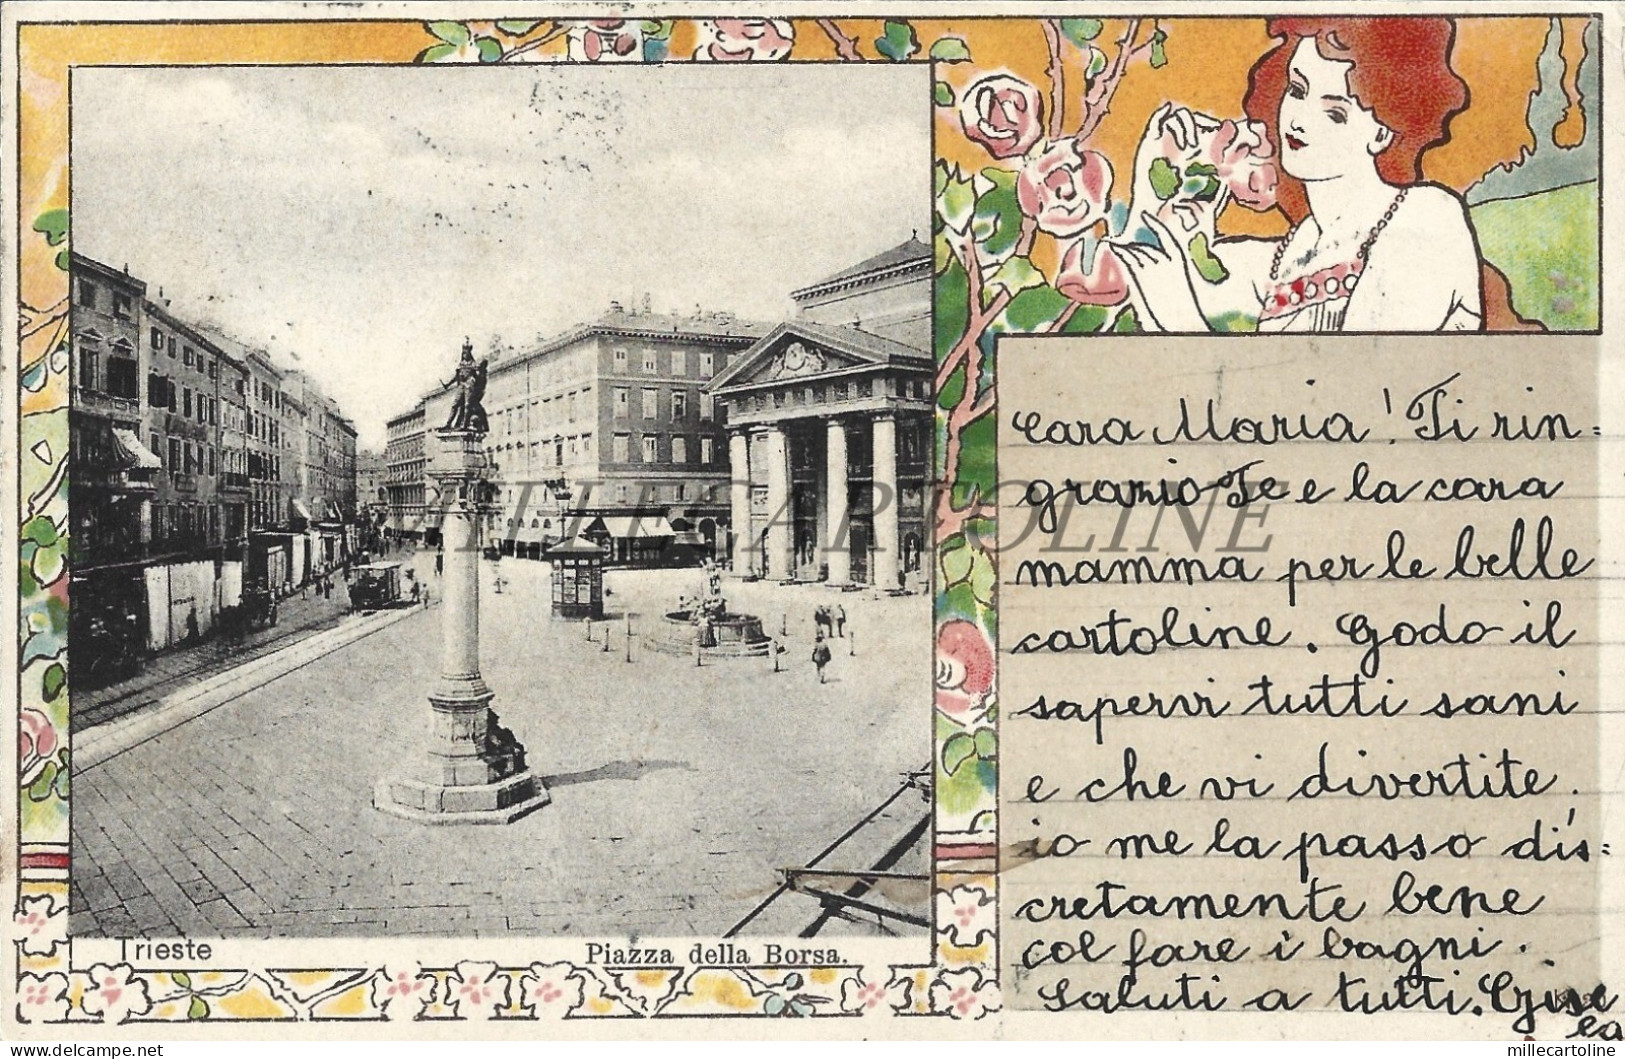 Cara Maria! Ti rin=
grazio Te e la cara
mamma per le belle
cartoline. Godo il
sapervi tutti sani
e che vi divertite.
io me la passo dis=
cretamente bene
col fare i bagni.
Saluti a tutti. Gise
la
MILLECARTOLINE
Trieste
Piazza della Borsa.
delcampe.net
millecartoline